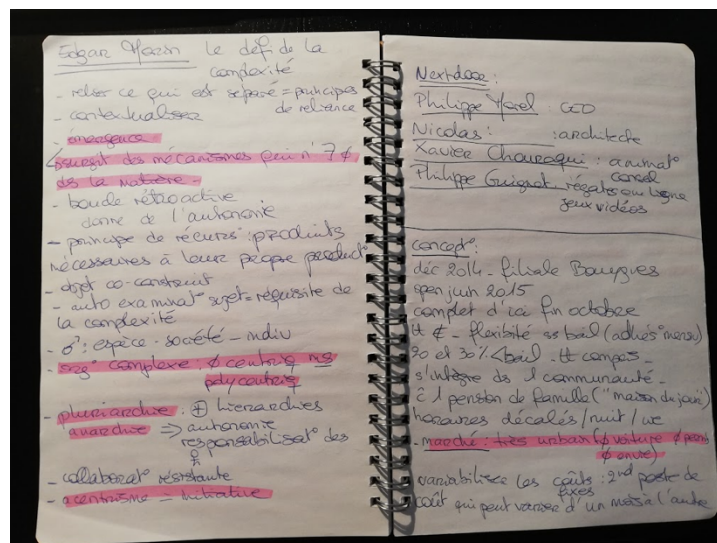 Edgar Morin le défi de la
complexité
- relier ce qui est séparé = principes
de reliance
- contextualiser
- émergence
surgit des mécanismes qui n' 7 ∉
ds la matière -
- boucle rétroactive
donne de l'autonomie
- principe de récurs° : produits
nécessaires à leur propre product°
- objet co-construit
- auto examinat° sujet = réquisite de
la complexité
- ♂ : espèce - société - indiv
- org° complexe : ∉ centriq ms
polycentriq
- pluriarchie : ⊕ hiérarchies
anarchie ⇒ autonomie
responsabilisat° des
- collaborat° résistante
- acentrisme = initiative
Nextdoor :
Philippe Morel : CEO
Nicolas : : architecte
Xavier Chouraqui : animat°
conseil
Philippe Guignet régates en ligne
jeux vidéos
concept° :
déc 2014 - filiale Bouygues
open juin 2015
complet d'ici fin octobre
flexibilité ss bail (adhés° mensu)
20 et 30% < bail - tt compris -
s'intègre ds 1 communauté -
1 pension de famille ("maison du jouir")
horaires décalés / nuit / we
- marche : très urbain (∉ voiture
∉ envie)
variabilise les coûts : 2nd poste de
fixes
coût qui peut varier d'un mois à l'autre